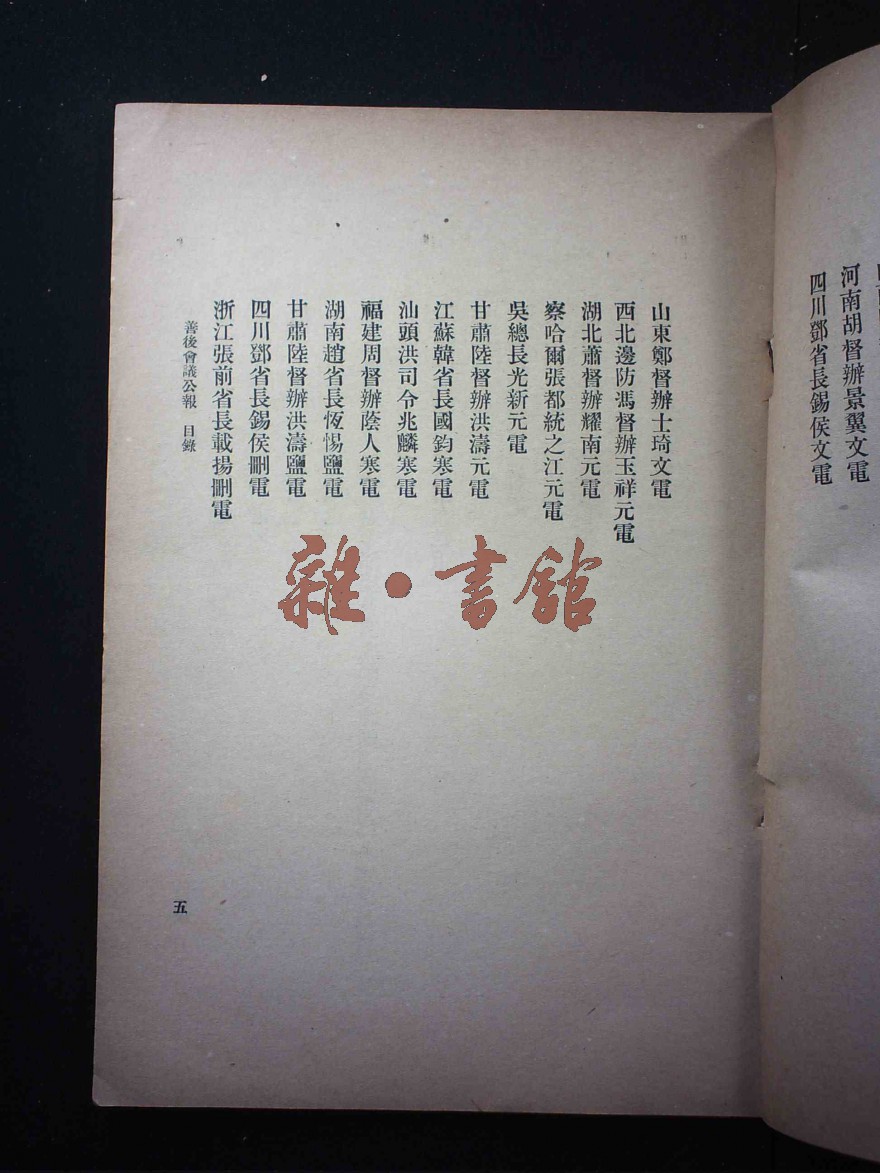 河南胡督辦景翼文電
四川鄧省長錫侯文電
山東鄭督辦士琦文電
西北邊防馮督辦玉祥元電
湖北蕭督辦耀南元電
察哈爾張都統之江元電
吳總長光新元電
甘肅陸督辦洪濤元電
江蘇韓省長國鈞寒電
汕頭洪司令兆麟寒電
福建周督辦蔭人寒電
湖南趙省長恆惕鹽電
甘肅陸督辦洪濤鹽電
四川鄧省長錫侯刪電
浙江張前省長載揚刪電
善後會議公報　目錄
五
雜•書館